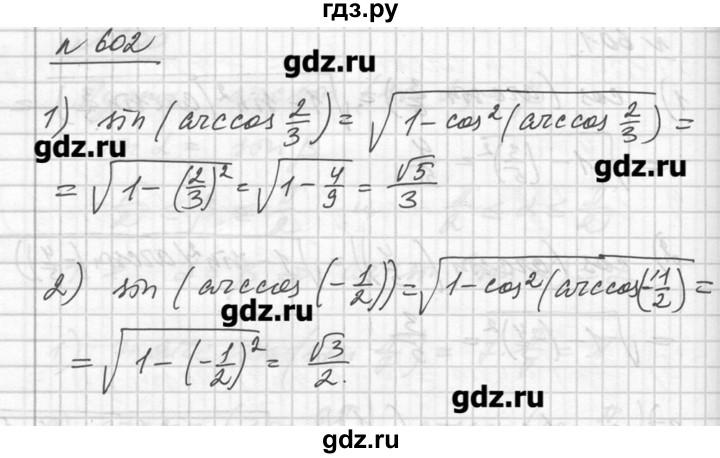 гдз.ру
n 602
gdz.ru
1) sin (arccos 2/3) = √(1-cos²(arccos 2/3)) =
gdz.ru
gdz.ru
= √(1-(2/3)²) = √(1-4/9) = √5/3
2) sin (arccos (-1/2)) = √(1-cos²(arccos(-1/2))) =
gdz.ru
= √(1-(-1/2)²) = √3/2.
gdz.ru
gdz.ru